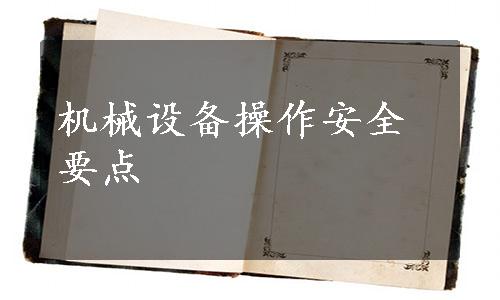 机械设备操作安全
要点